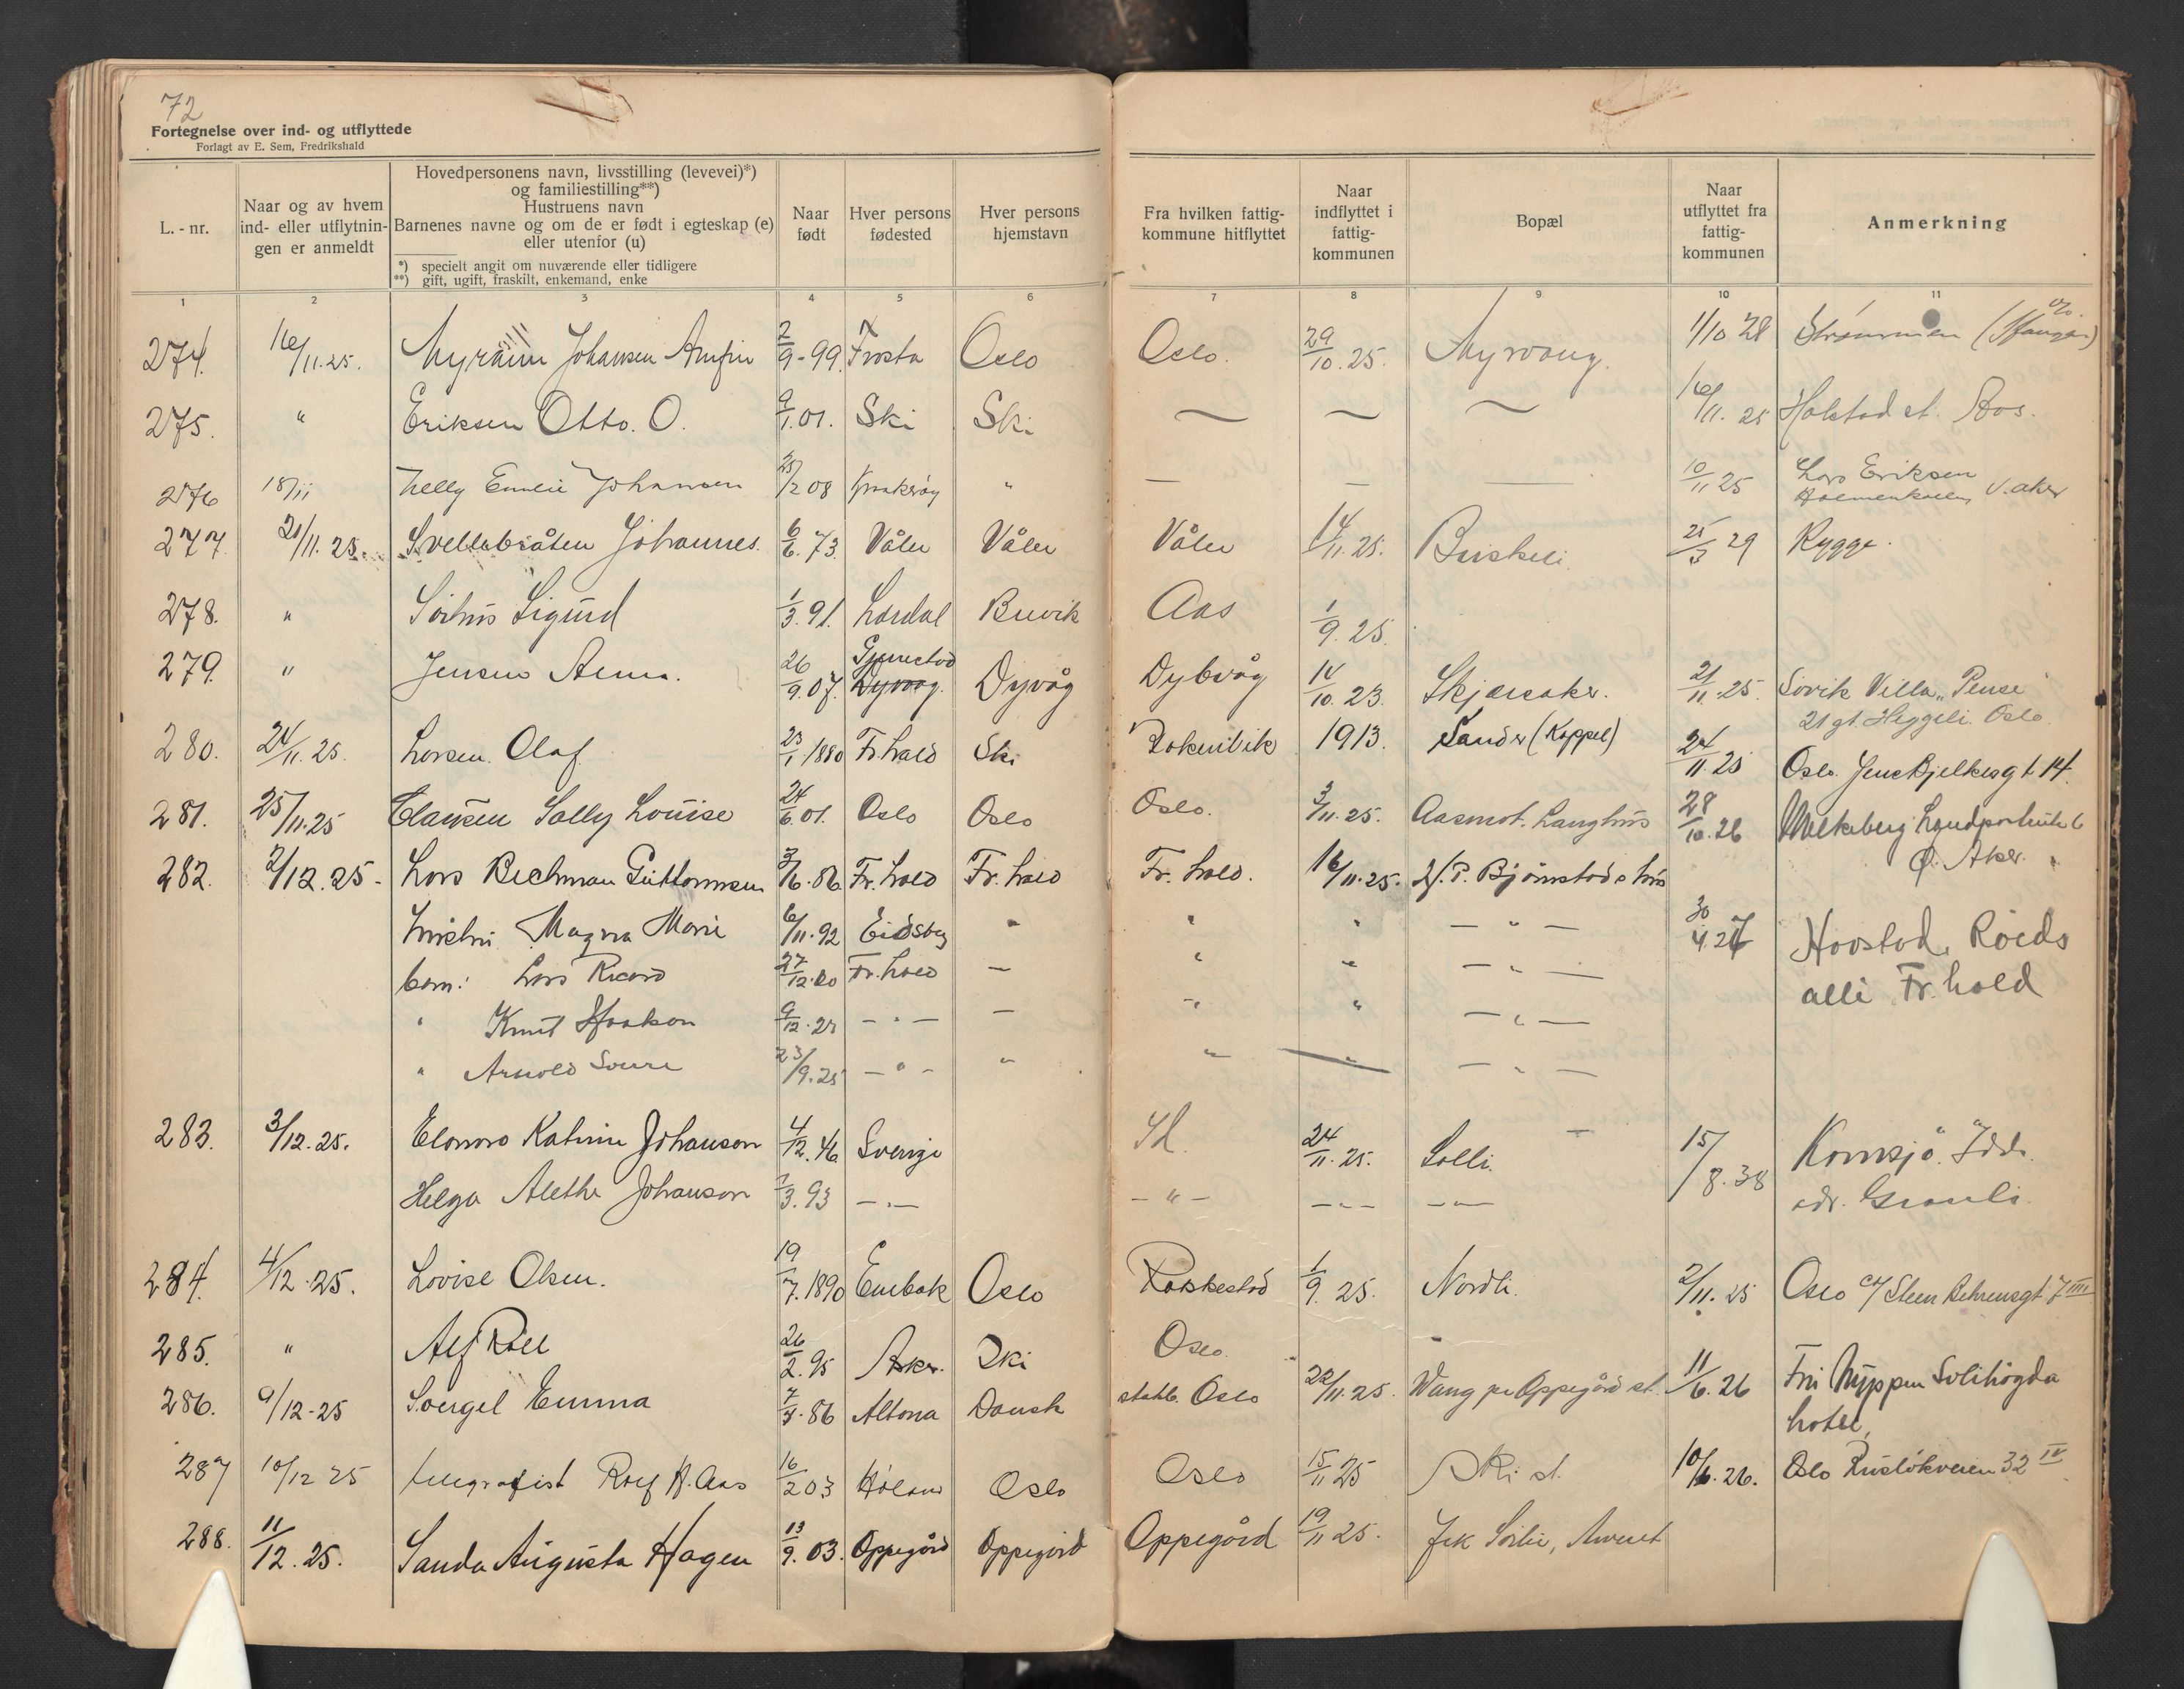 72
Fortegnelse over ind- og utflyttede
Forlagt av E. Sem, Fredrikshald
L. - nr.
Naar og av hvem ind- eller utflytnin- gen er anmeldt
Hovedpersonens navn, livsstilling (levevei)*)
og familiestilling**)
Hustruens navn
Barnenes navne og om de er født i egteskap (e)
eller utenfor (u)
*) specielt angit om nuværende eller tidligere
**) gift, ugift, fraskilt, enkemand, enke
Naar født
Hver persons fødested
Hver persons hjemstavn
Fra hvilken fattig- kommune hitflyttet
Naar indflyttet i fattig- kommunen
Bopæl
Naar utflyttet fra fattig- kommunen
Anmerkning
1 2 3 4 5 6 7 8 9 10 11
274. 16/11.25. Johansen Arnfin 2/9-99. Frosta Oslo Oslo. 29/10.25. Myrvang. 1/10 28 Strømmen
275. " Eriksen Otto. O. 9/1.01. Ski Ski 16/11.25 Holstad st. Aas.
276 18/11 Nelly Emilie Johansen 25/2 08 Kraakerøy " — — — 10/11 25 Lars Eriksen
Holmenkollen, V. aker
277. 21/11.25. Svellebråten Johannes. 6/6.73. Våler Våler Våler 14/11.25. Buskeli. 25/3 29 Rygge.
278. " Sigurd 1/3.91. Lardal Buvik Aas 1/9.25.
279. " Jensen Anna. 26/9.07. Gjerestad Dyvåg Dybvåg 14/10.23. Skjærsaker. 21/11.25. Sørvik Villa
21 gt. Heggeli Oslo.
280. 24/11.25. Larsen Olaf 23/1 1880 Fr.hald Ski 1913. Sander (Kappel) 24/11.25 Oslo. Jens Bjelkesgt. 14.
281. 25/11.25 Clausen Sally Louise 24/6.01. Oslo Oslo Oslo. 3/11.25. Aasmot. Langhus 28/10.26
Ø. Aker.
282. 2/12.25. Lars Bechman Guttormsen 3/6.86 Fr.hald Fr.hald Fr.hald. 16/11.25. Bjørnstads hus
hustru Magna Marie 6/11.92 Eidsberg " " " — " — 30/4.27 Hovstad, Røeds
barn: Lars Ricard 27/12.20 Fr.hald — " " — " — alle Fr.hald
" Knut Haakon 9/12.21 — " — — " " — " —
" Arnold 23/9.25 — " — " " " — " —
283. 3/12.25. Elonora Katrine Johanson 4/12.46 Sverige 24/11.25. Solli. 15/8.38 Kornsjø. Idd.
Helga Alethe Johanson 7/3.93 — " — — " — — " — — " — adr. Granli.
284. 4/12.25. Lovise Olsen. 19/7.1890 Enebak Oslo 1/9.25. Nordli. 2/11.25 Oslo c/ Steen Behrensgt 7 III
285. " Alf Roll 26/2.95 Asker. Ski Oslo.
286. 9/12-25 Soergel Emma 7/7.86 Altona Dansk statb. Oslo 22/11.25. Wang pr Oppegård st. 11/6.26 Nyppen Solihøgda
hotel,
287 10/12 25 telegrafist Rolf H. Aas 16/2 03 Høland Oslo Oslo 15/11 25 Ski st. 10/6.26. Oslo Ruseløkveien 32 IV
288. 11/12.25. Sanda Augusta Hagen 13/9.03. Oppegård Oppegård Oppegård 19/11 25.